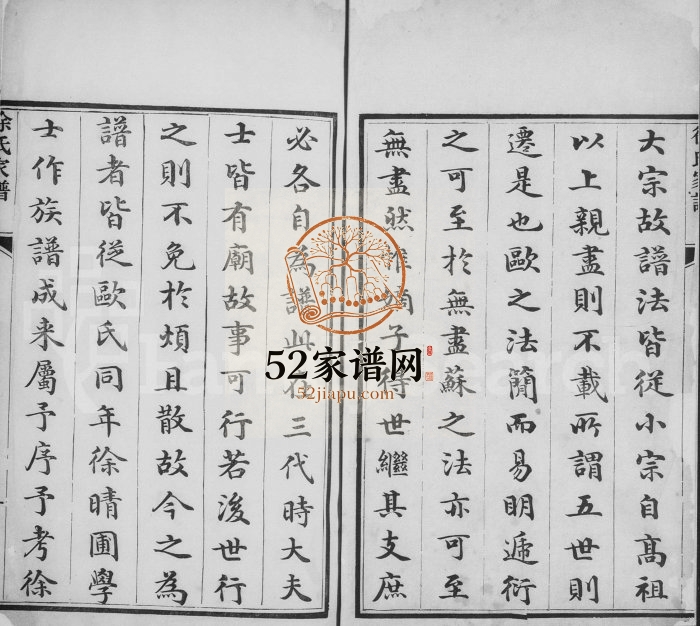 徐氏家譜
大宗故譜法皆從小宗自高祖
以上親盡則不載所謂五世則
遷是也歐之法簡而易明遞衍
之可至於無盡蘇之法亦可至
無盡然 子得世繼其支庶
必各自為譜此在三代時大夫
士皆有廟故事可行若後世行
之則不免於煩且散故今之為
譜者皆從歐氏同年徐晴圃學
士作族譜成来屬予序予考徐
徐氏家譜
52家谱网
52jiapu.com